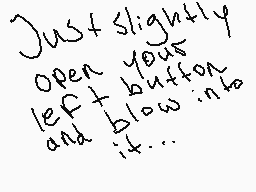 Just slightly
open your
left button
and blow into
it...